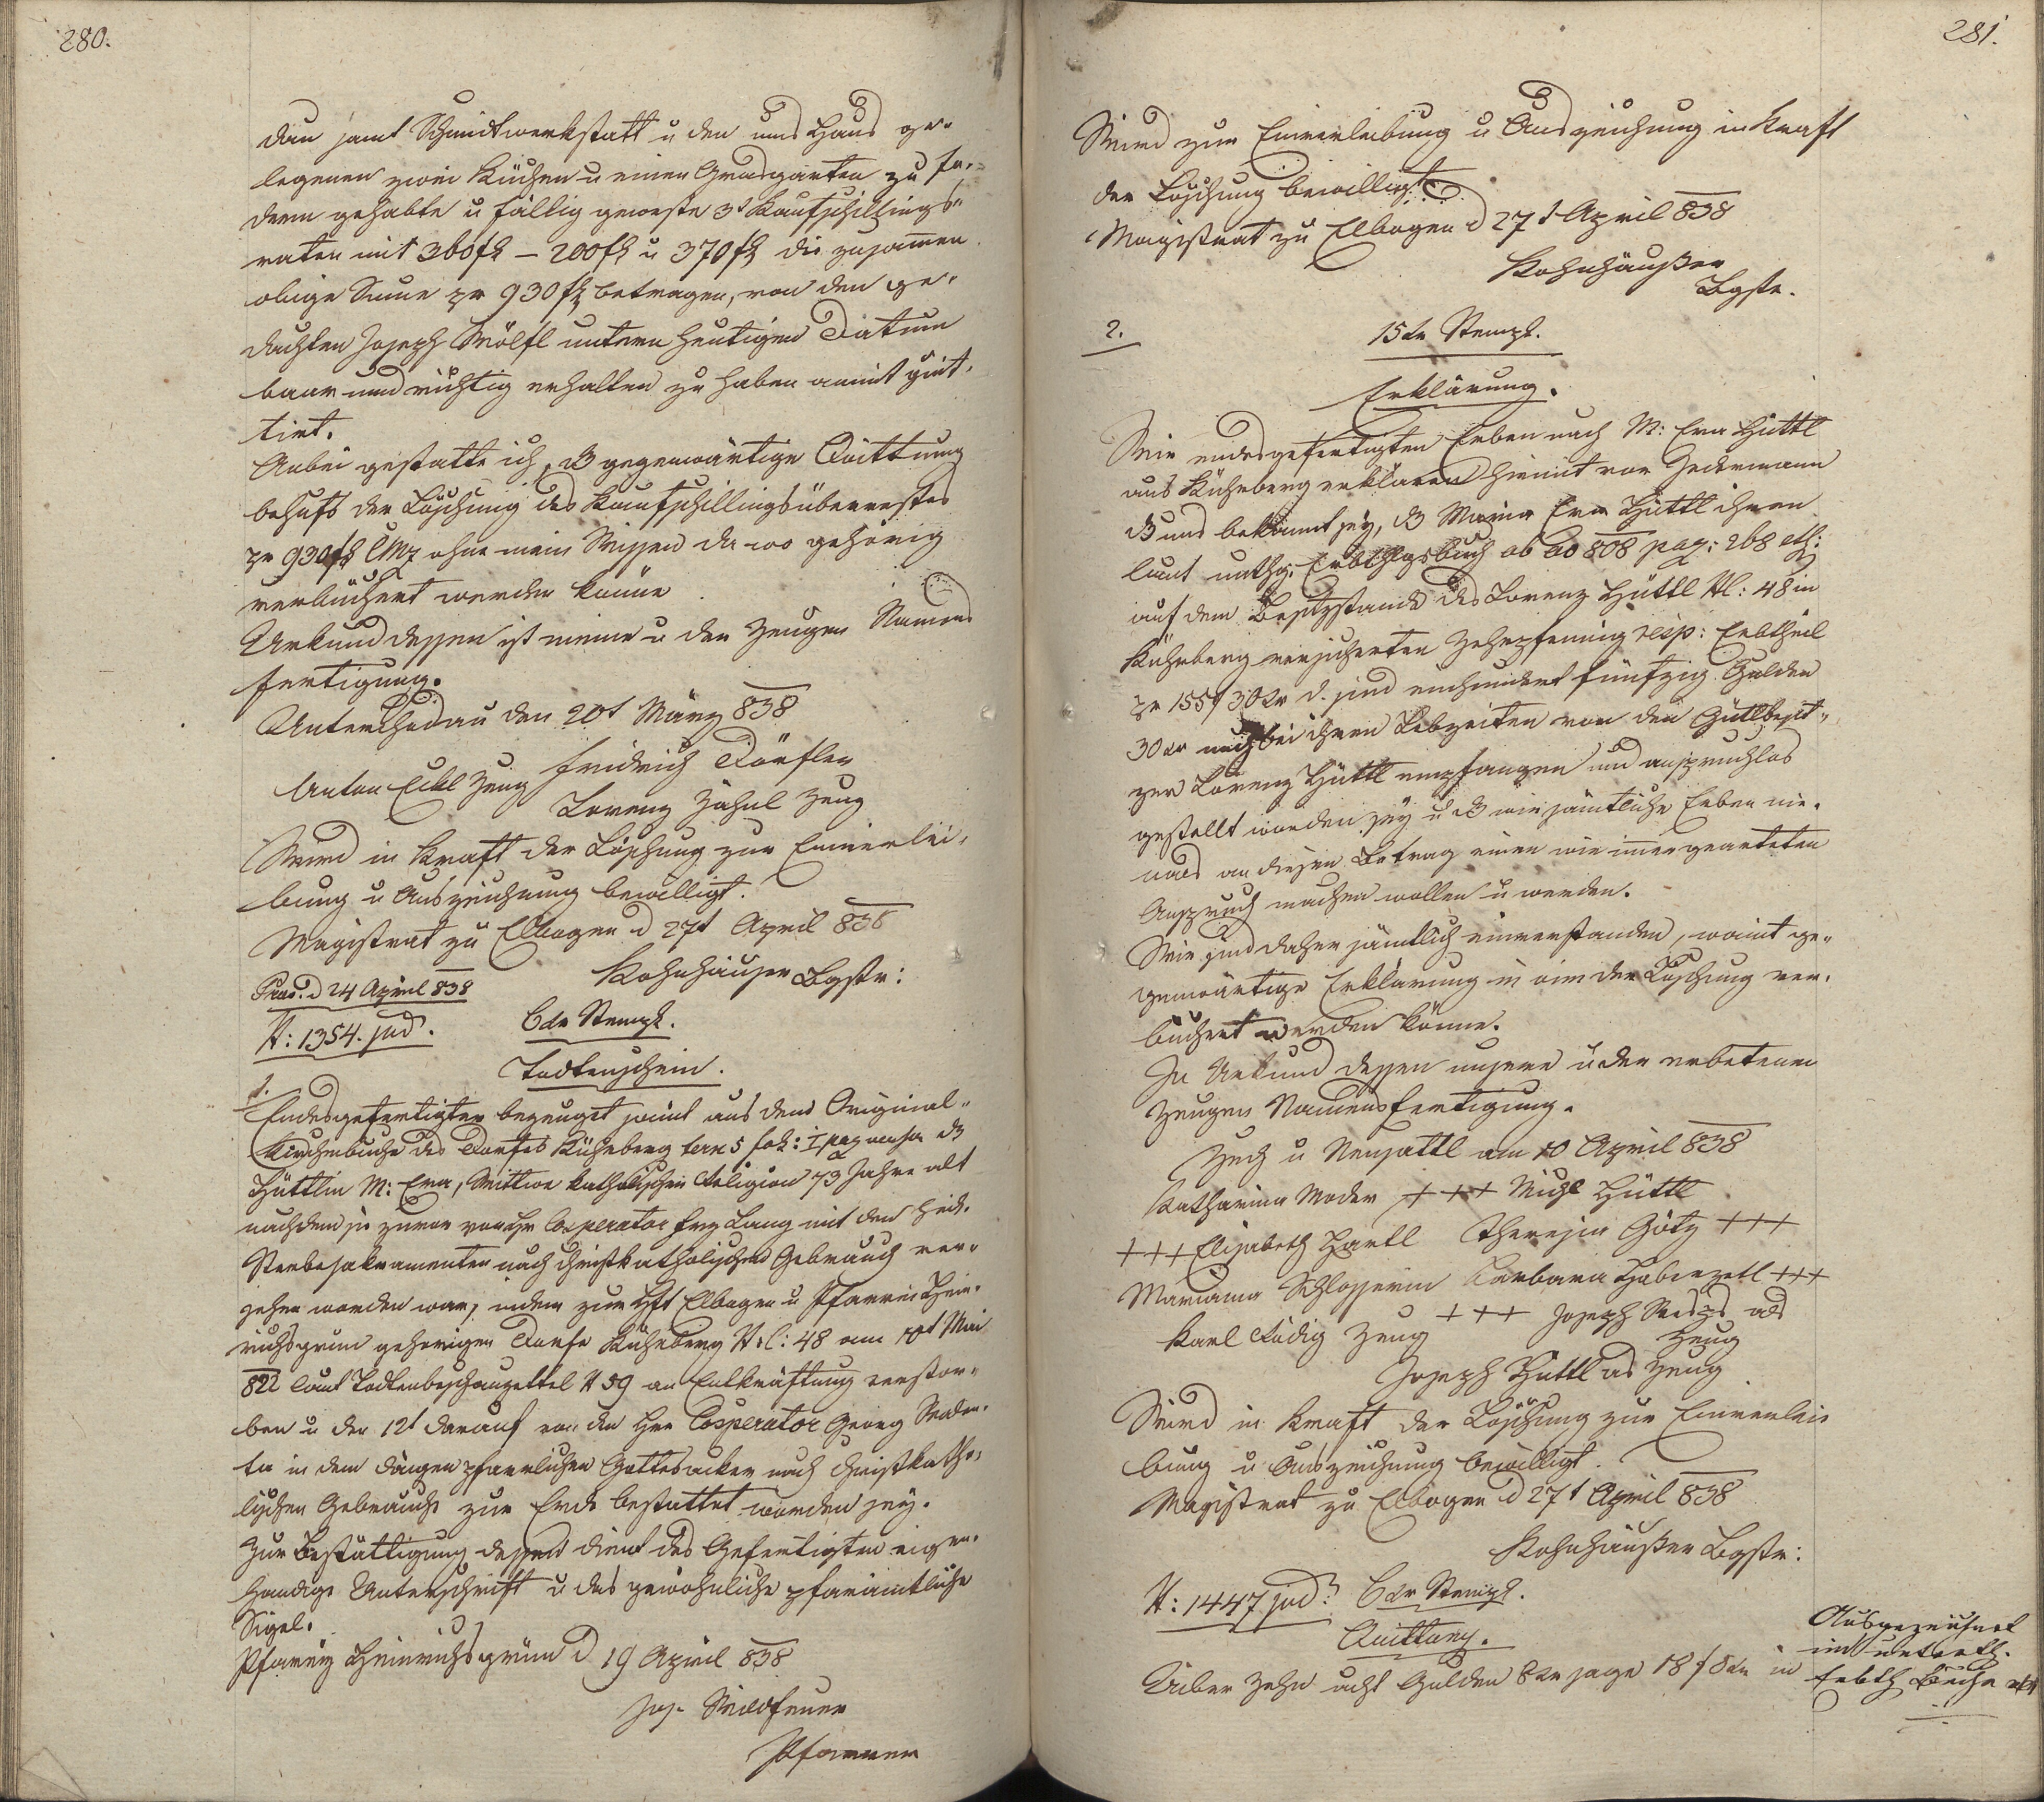 280.
dan samt Schmidtwerkstatt u den ums Haus ge-
legenen zwei Küchen u einen Grasgarten zu for-
dern gehabte u fällig geweste 3t Kaufschillings-
raten mit 360 fl – 200 fl u 370 fl die zusamen
obige Sume pr 930 fl betragen, von den ge-
dachten Joseph Wölfl untern heutigen Datum
baar und richtig erhalten zu haben anmit quit-
tirt.
Anbei gestatte ich, dß gegenwärtige Quittung
behufs der Löschung des Kaufschillingsüberrestes
pr 930 fl CMz ohne mein Wissen da wo gehörig
verbüchert werden könne
Urkund dessen ist meine u der Zeugen Namens
fertigung.
Unterchodau den 20t März 838
Anton Eckl Zeug Fridrich Dörfler
Lorenz Hahnl Zeug
Wird in Kraft der Löschung zur Einverlei-
bung u Auszeichnung bewilligt.
Magistrat zu Elbogen d 27t April 838
Kohnhäuser Bgstr:
Präs. d 24 April 838
N: 1354. jud.
6 kr Stempl.
Todtenschein.
1.
Endesgefertigter bezeuget somit aus dem Original-
Kirchenbuche des Dorfes Kühnberg tom 5 fol: I pag versa dß
Hüttlin M: Eva, Wittwe katholischen Religion 73 Jahre alt
nachdem sie zuvor von Hr Cooperator Frz Lang mit den heil.
Sterbesakramenten nach christkatholischen Gebrauch ver-
sehen worden war, indem zur Hft Elbogen u Pfarrei Hein-
richsgrün gehörigen Dorfe Kühnberg N. C: 48 am 10t Mai
822 laut Todtenbeschauzettel N 59 an Entkräftung verstor-
ben u den 12t darauf von den Hrn Cooperator Georg
in dem dasigen pfarrlichen Gottesacker nach christkatho-
lischen Gebrauche zur Erde bestattet worden sey.
Zur Bestättigung dessen dient des Gefertigten eigen-
händige Unterschrift u das gewöhnliche pfaramtliche
Sigel.
Pfarrey Heinrichsgrün d 19 April 838
Jos. Wildfeuer
Pfarrer
281.
Wird zur Einverleibung u Auszeichnung in Kraft
der Löschung bewilligt.
Magistrat zu Elbogen d 27t April 838
Kohnhäußer
Bgstr.
2.
15 kr Stempl.
Erklärung.
Wir endesgefertigten Erben nach M: Eva Hüttl
aus Kühnberg erklären hiemit vor Jedermann
dß uns bekannt sey, dß Maria Eva Hüttl ihren
laut unthg. Erbthlgsbuch ab ao 808 pag: 268 etc:
auf dem Besitzstande des Lorenz Hüttl N C: 48 in
Kühnberg versicherten Zehrpfening resp: Erbtheil
pr 155 f 30 kr d. sind einhundert fünfzig Gulden
30 kr noch bei ihren Lebzeiten von den Gutsbesit-
zer Lorenz Hüttl empfangen und anspruchlos
gestellt worden sey u dß wir sämtliche Erben nie-
mals an diesen Betrag einen wie immer gearteten
Anspruch machen wollen u werden.
Wir sind daher sämtlich einverstanden, womit ge-
genwärtige Erklärung in vim der Löschung ver-
büchert werden könne.
In Urkund dessen unsere u der erbetenen
Zeugen Namensfertigung.
Zech u Neusattl am 10 April 838
Katharina Moder +++ Michl Hüttl
+++ Elisabeth Hartl Theresia Götz +++
Mariana Schlosserin Barbara Haberzettl +++
Karl Südig Zeug +++ Joseph als
Zeug
Joseph Hüttl als Zeug
Wird in Kraft der Löschung zur Einverlei-
bung u Auszeichnung bewilligt.
Magistrat zu Elbogen d 27t April 838
Kohnhäußer Bgstr:
N: 1447 jud: 6 kr Stempl.
Quittung.
Über zehn acht Gulden 8 kr sage 18 f 8 kr in
Ausgezeichnet
im
Erbth Buche